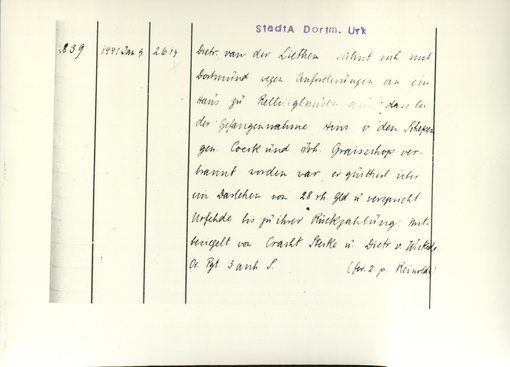 StadtA Dortm. Urk
839 1441 Jan 9 2619 Dietr. van der Liethen sühnt sich mit
Dortmund wegen Anforderungen an ein
Haus zu Rellinghausen aus, das bei
der Gefangennahme Hinr. v. den
gen. Coerk und Joh. ver-
brannt worden war, er quittiert über
ein Darlehen von 28 rh. Gld u. verspricht
Urfehde bis zu ihrer Rückzahlung. Mit-
besiegelt von Cracht Stecke u. Dietr. v. Wickede
Or. Pgt. 3 anh. S. (fer. 2 p. Reinoldi)